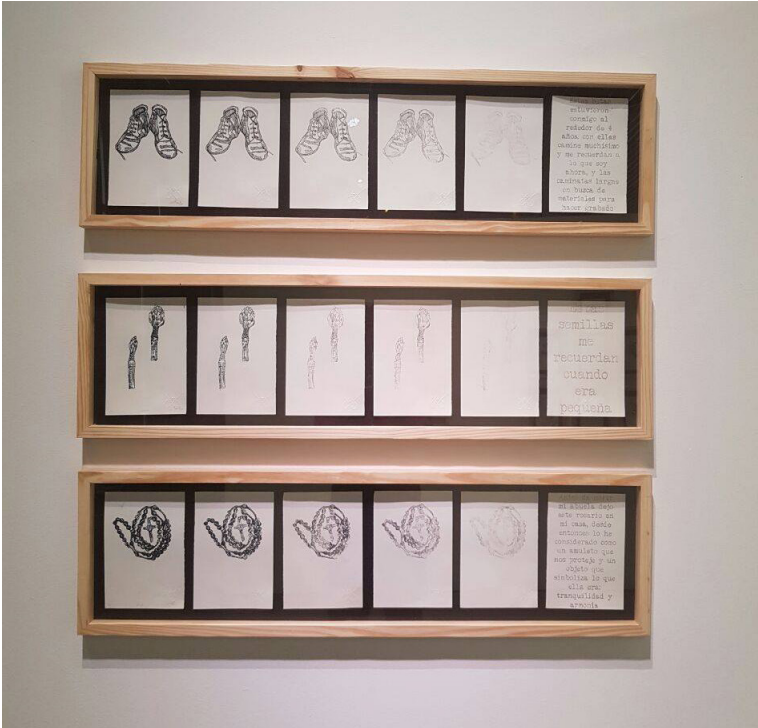 Estas botas
estuvieron
conmigo al
rededor de 4
años, con ellas
camine muchisimo
y me recuerdan a
lo que soy
ahora, y las
caminatas largas
en busca de
materiales para
hacer grabado
Estas
semillas
me
recuerdan
cuando
era
pequeña
mi abuela dejo
este rosario en
mi casa, desde
entonces lo he
considerado como
un amuleto que
nos proteje y un
objeto que
simboliza lo que
ella era,
tranquilidad y
armonia